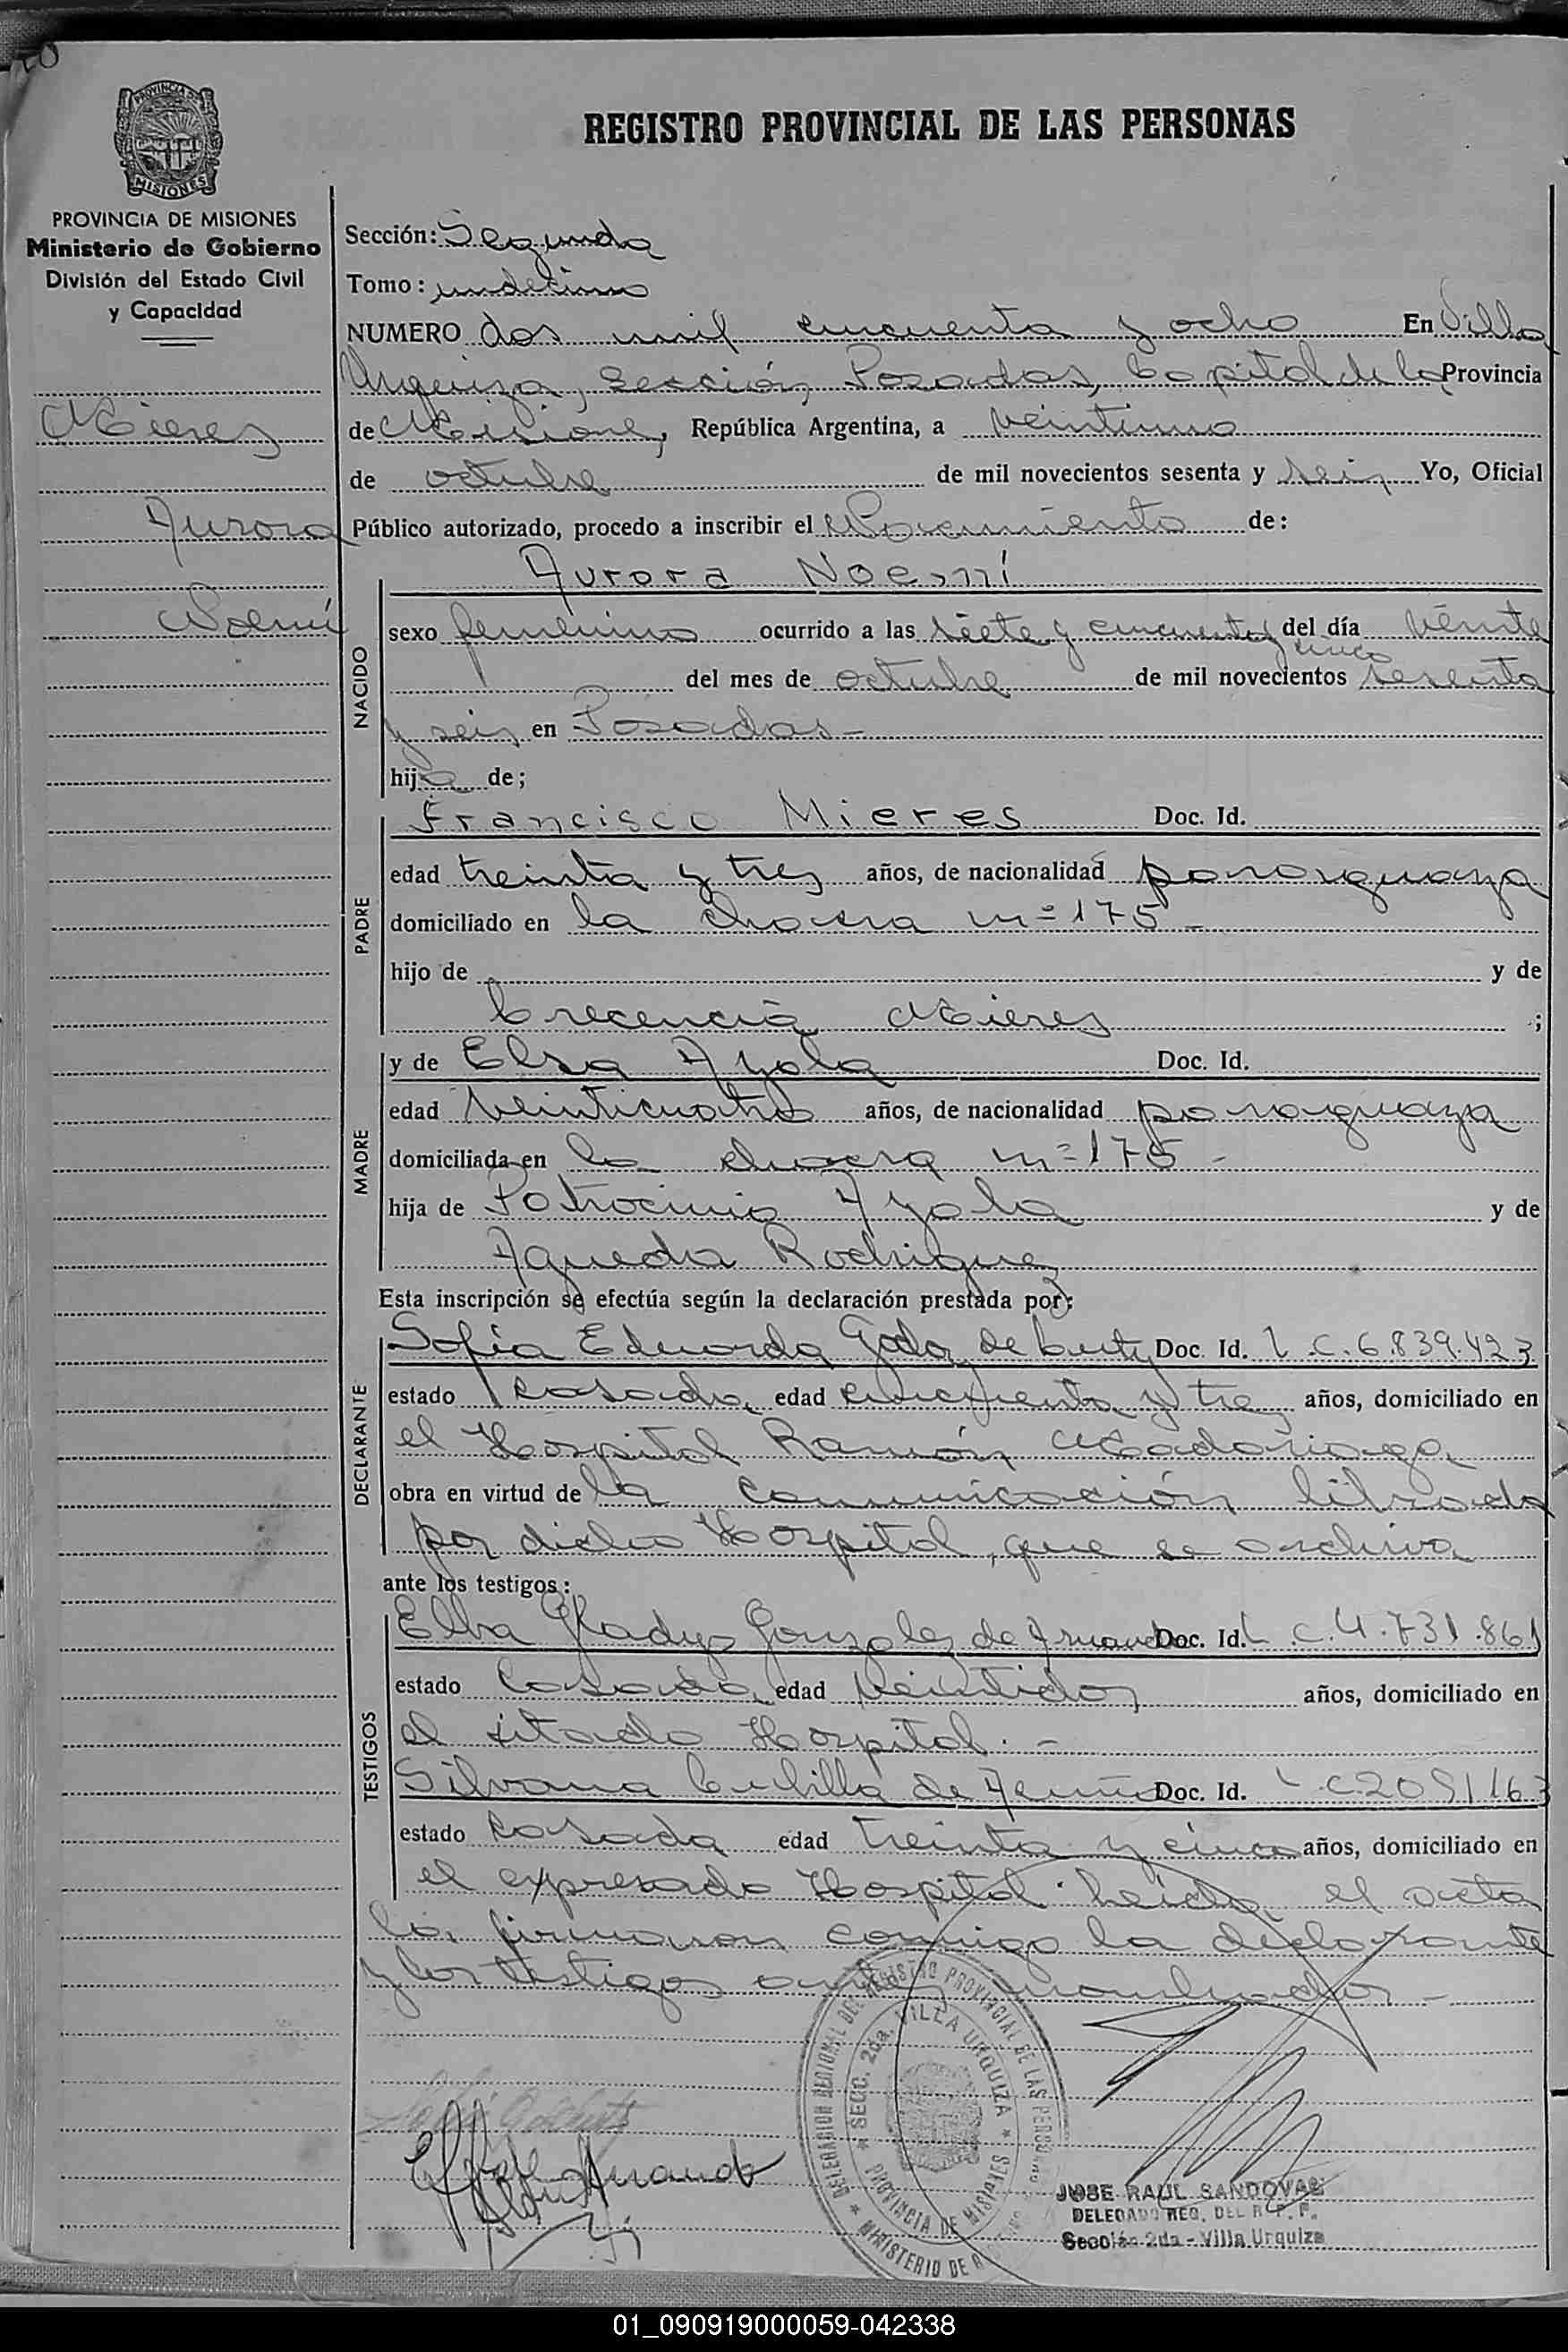 REGISTRO PROVINCIAL DE LAS PERSONAS
PROVINCIA DE
MISIONES
PROVINCIA DE MISIONES
Ministerio de Gobierno
División del Estado Civil
y Capacidad
Mieres
Aurora
Noemí
Sección: Segunda
Tomo: undecimo
NUMERO dos mil cincuenta y ocho En Villa
Urquiza, Sección, Posadas, Capital de la Provincia
de Misiones, República Argentina, a veintiuno
de octubre de mil novecientos sesenta y seis Yo, Oficial
Público autorizado, procedo a inscribir el Nacimiento de:
NACIDO
Aurora Noemí
sexo femenino ocurrido a las siete y cincuenta y cinco del día veinte
del mes de octubre de mil novecientos sesenta
y seis en Posadas-
hija de;
PADRE
Francisco Mieres Doc. Id.
edad treinta y tres años, de nacionalidad paraguaya
domiciliado en la chacra nº 175-
hijo de y de
Crecencia Mieres ;
MADRE
y de Elsa Ayala Doc. Id.
edad veinticuatro años, de nacionalidad paraguaya
domiciliada en la chacra nº 175-
hija de Patrocinio Ayala y de
Agueda Rodriguez
Esta inscripción se efectúa según la declaración prestada por:
DECLARANTE
Sofia Eduarda Goda de Doc. Id. L.C. 6.839.423
estado casada edad cincuenta y tres años, domiciliado en
el Hospital Ramón Madariaga
obra en virtud de la comunicación librada
por dicho Hospital, que se archiva
ante los testigos:
TESTIGOS
Elba Gladys Gonzalez de Doc. Id. L.C. 4.731.861
estado casada edad veintidos años, domiciliado en
el citado Hospital.-
Silvana de Doc. Id. L C 2091163
estado casada edad treinta y cinco años, domiciliado en
el expresado Hospital. Leída el acta
la firmaron conmigo la declarante
y los testigos nombrados-
DELEGACION REGIONAL DEL REGISTRO PROVINCIAL DE LAS PERSONAS
SECC. 2da. VILLA URQUIZA
PROVINCIA DE MISIONES
MINISTERIO DE
JOSE RAUL SANDOVAL
DELEGADO REG. DEL R. P. P.
Sección 2da - Villa Urquiza
01_090919000059-042338